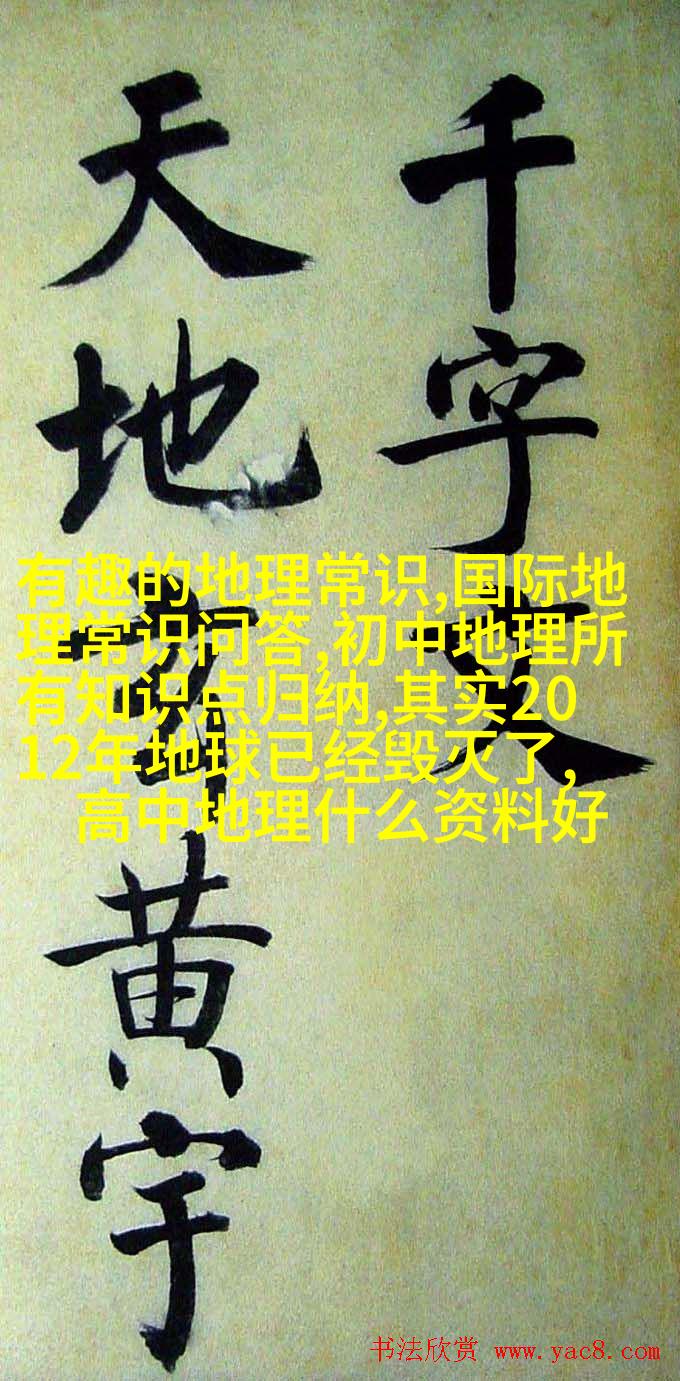 千字文
天地玄黄宇
有趣的地理常识,国际地
理常识问答,初中地理所
有知识点归纳,其实20
12年地球已经毁灭了,
高中地理什么资料好
书法欣赏 www.yac8.com